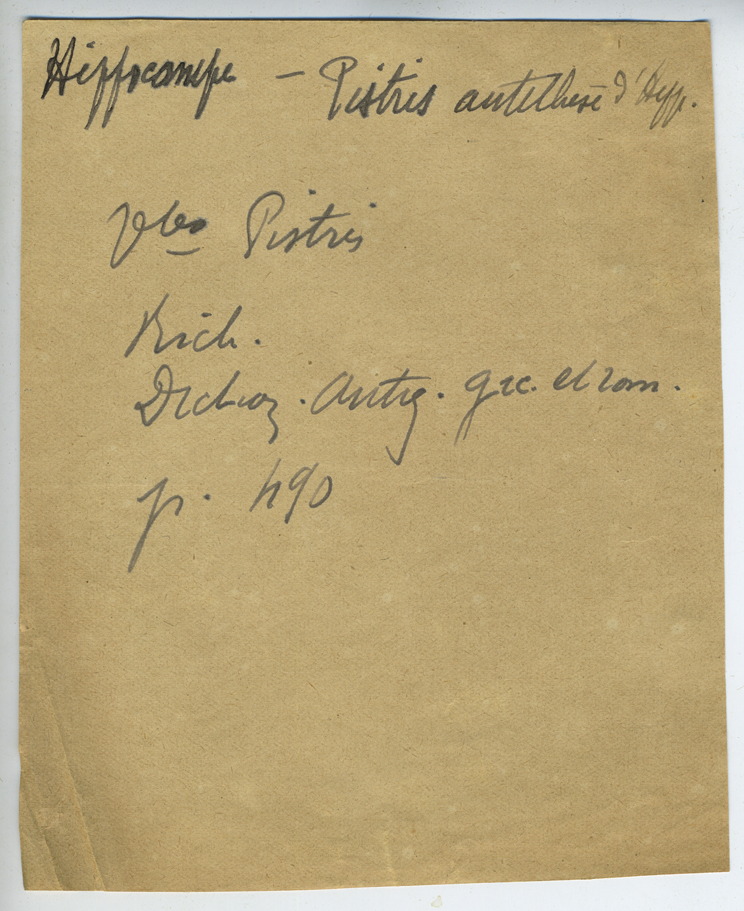 Hippocampe — Pistris antithèse d'Hipp.
Vbo Pistris
Rich.
Diction. Antiq. grec. et rom.
p. 490